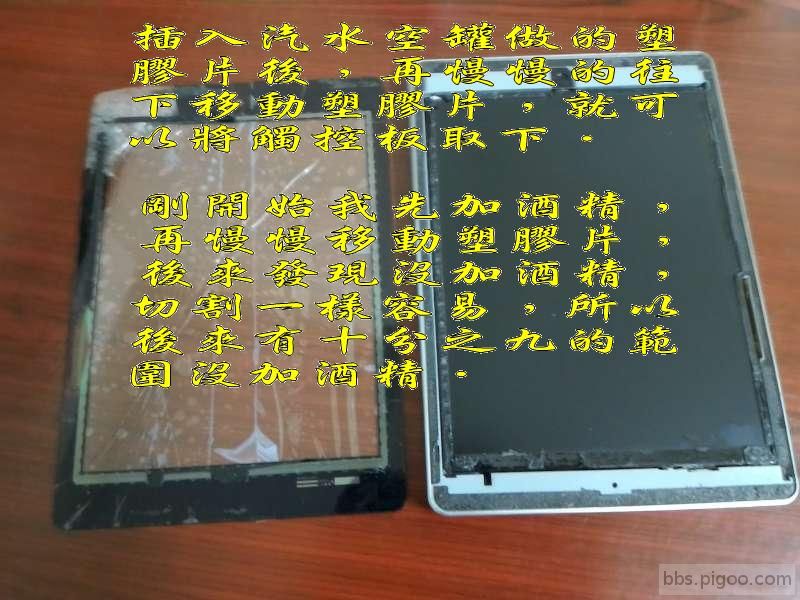 插入汽水空罐做的塑
膠片後，再慢慢的往
下移動塑膠片，就可
以將觸控板取下．
剛開始我先加酒精，
再慢慢移動塑膠片，
後來發現沒加酒精，
切割一樣容易，所以
後來有十分之九的範
圍沒加酒精．
bbs.pigoo.com